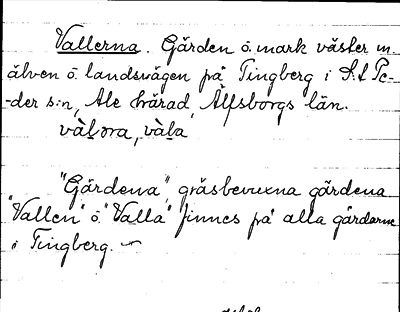 Vallerna. Gärden o. mark väster m.
älven o. landsvägen på Tingberg i S:t Pe-
-der s:n, Ale härad, Älfsborgs län.
"Gärdena", gräsbevuxna gärdena
"Vallen" o. "Valla" finnes på alla gårdarne
i Tingberg.